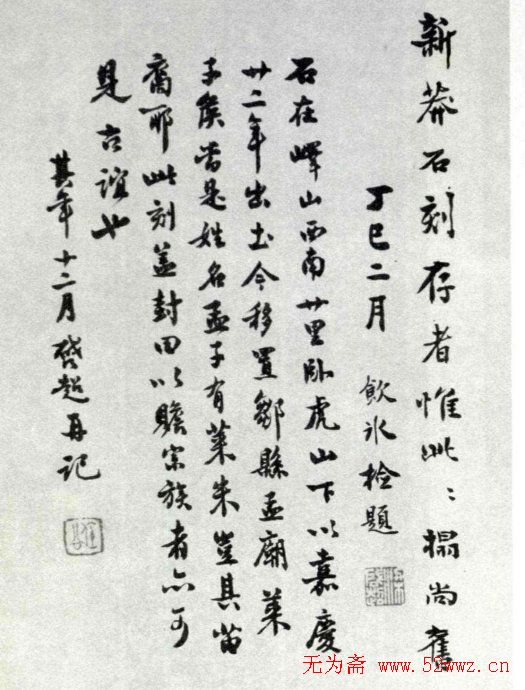 新莽石刻存者惟此〻搨尚舊
丁巳二月 飲冰檢題
石在嶧山西南廿里卧虎山下以嘉慶
廿二年出土今移置鄒縣孟廟萊
子侯當是姓名孟子有萊朱豈其苗
裔耶此刻蓋封田以贍宗族者亦可
見古誼也
其年十二月啓超再記
无为斋 www.52wwz.cn